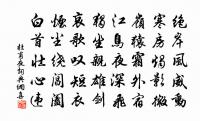 絶岸風威動
寒房燭影微
嶺猿霜外宿
江鳥夜深飛
獨坐親雄劍
哀歌歎短衣
煙塵繞閶闔
白首壯心違
杜甫夜詞典網